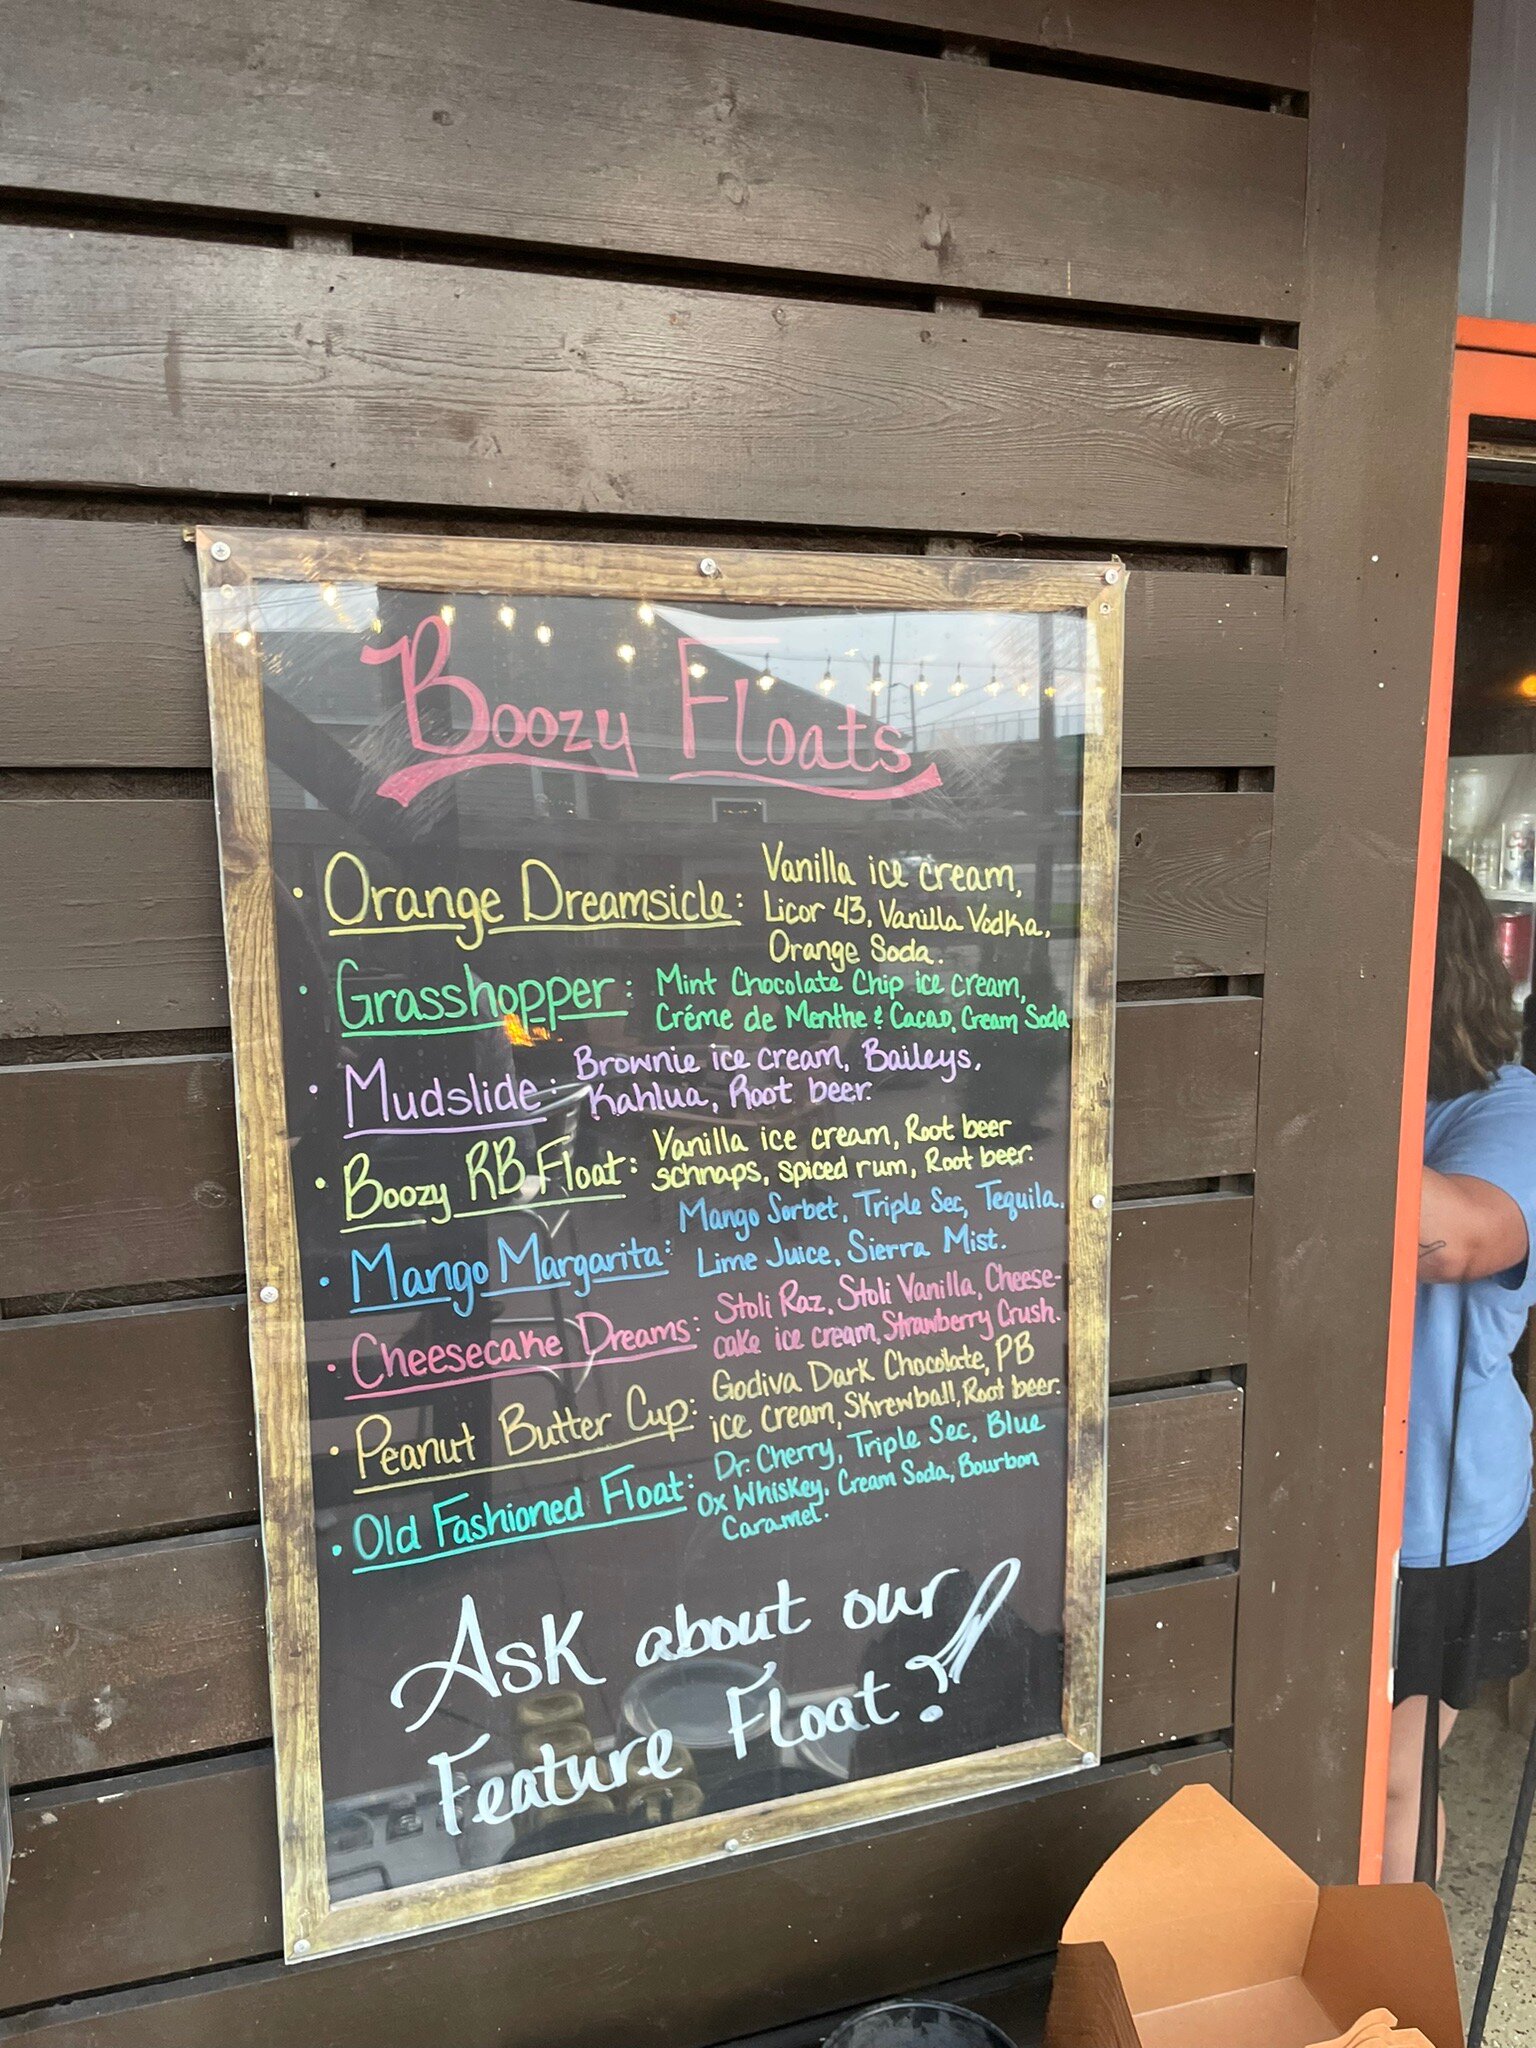 Boozy Floats
• Orange Dreamsicle: Vanilla ice cream,
Licor 43, Vanilla Vodka,
Orange Soda.
• Grasshopper: Mint Chocolate Chip ice cream,
Créme de Menthe & Cacao, Cream Soda
• Mudslide: Brownie ice cream, Baileys,
Kahlua, Root beer.
• Boozy RB Float: Vanilla ice cream, Root beer
schnaps, spiced rum, Root beer.
• Mango Margarita: Mango Sorbet, Triple Sec, Tequila,
Lime Juice, Sierra Mist.
• Cheesecake Dreams: Stoli Raz, Stoli Vanilla, Cheese-
cake ice cream, Strawberry Crush.
• Peanut Butter Cup: Godiva Dark Chocolate, PB
ice cream, Skrewball, Root beer.
• Old Fashioned Float: Dr. Cherry, Triple Sec, Blue
Ox Whiskey, Cream Soda, Bourbon
Caramel.
Ask about our
Feature Float?!